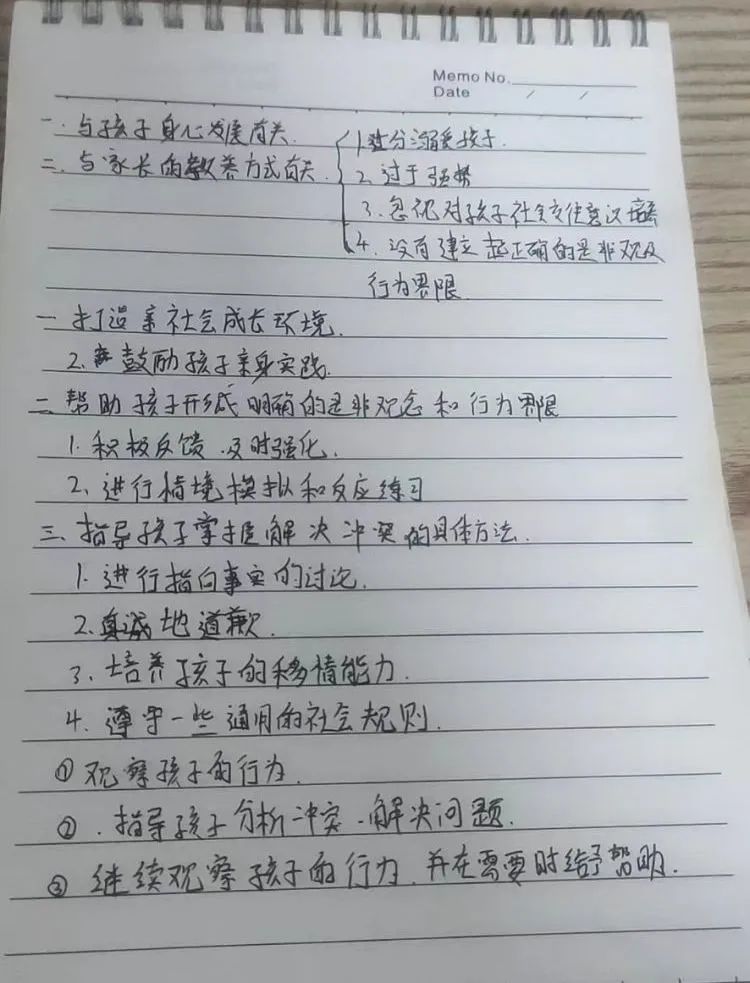 Memo No.
Date / /
一. 与孩子身心发展有关.
二. 与家长的教养方式有关.
1. 过分溺爱孩子.
2. 过于强势
3. 忽视对孩子社会交往意识培养
4. 没有建立起正确的是非观及
行为界限.
一 打造亲社会成长环境.
2. 鼓励孩子亲身实践.
二 帮助孩子形成明确的是非观念和行为界限
1. 积极反馈.及时强化.
2、进行情境模拟和反应练习
三. 指导孩子掌握解决冲突的具体方法.
1. 进行指向事实的讨论.
2. 真诚地道歉.
3、培养孩子的移情能力.
4. 遵守一些通用的社会规则.
① 观察孩子的行为.
②. 指导孩子分析冲突.解决问题.
③ 继续观察孩子的行为.并在需要时给予帮助.